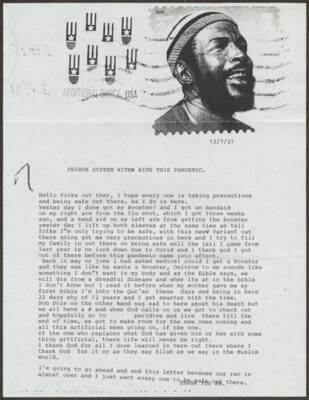 ADDITIONAL OUNCE USA
12/7/21
PRISON SYSTEM WITHM WITH THIS PANDEMIC.
Hello folks out ther, I hope every one is taking precautions
and being safe out there, As I do in here.
Yester day I done got my Booster! and I got an bandaid
on my right arm from the flu shot, which I got three weeks
ago, and a band aid on my left arm from getting the booster
yester day I lift up both sleeves at the same time an tell
folks I'm only trying to be safe, with this newW Varient out
there going got me very precautious in here and I try to fill
my family in out there on being safe well the jail I came from
last year is on lock down due to Covid and I thank god I got
out of there before this pandemic came into affect.
Back in may or june I had asked medical could I get a Booster
and they was like he wants a Booster, Omicron to me sounds like
something I don't want in my body and as the Bible says, we
will die from a dreadful disease and wher its at in the bible
I don't know but I read it before when my mother gave me my
first bible I'm into the Qur'an these days and being in here
22 days shy of 12 years and I got smarter with the time.
Bob Dole on the other hand way sad to here about his death but
we all have a # and when God calls on us we got to check out
and hopefully go to peridise and live there till the
end of time, we got to make room for the new ones coming and
all this artificial mess going on, if the one.
If the one who replaces what God has given him or her with some
thing artificial, there life will never be right.
I thank God for all I done learned in here out there where I
thank God for it or as they say Allah as we say in the Muslim
world.
I'm going to go ahead and end this letter because our rec is
almost over and I just want every one to be safe out there.